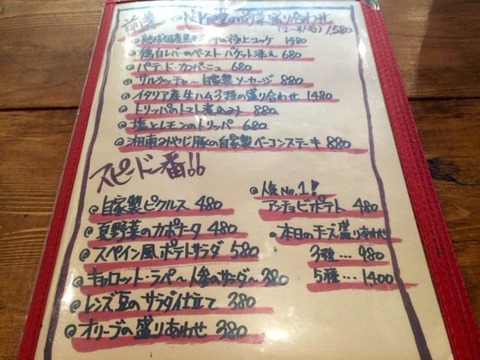 前菜 盛り合わせ
(2~3名) 1,580
1480
鶏白レバーのペースト バケット添え 680
パテ・ド・カンパーニュ 680
サルシッチャ〜自家製ソーセージ 880
イタリア産生ハム3種の盛り合わせ 1480
トリッパのトマト煮込み 880
塩とレモンのトリッパ 680
湘南みやじ豚の自家製ベーコンステーキ 880
スピード一番!!
自家製ピクルス 480
夏野菜のカポナータ 480
スペイン風ポテトサラダ 580
キャロット・ラペ〜人参のサラダ〜 380
レンズ豆のサラダ仕立て 380
オリーブの盛りあわせ 380
人気No.1!
アンチョビポテト 480
本日のチーズ盛りあわせ
3種… 980
5種… 1400